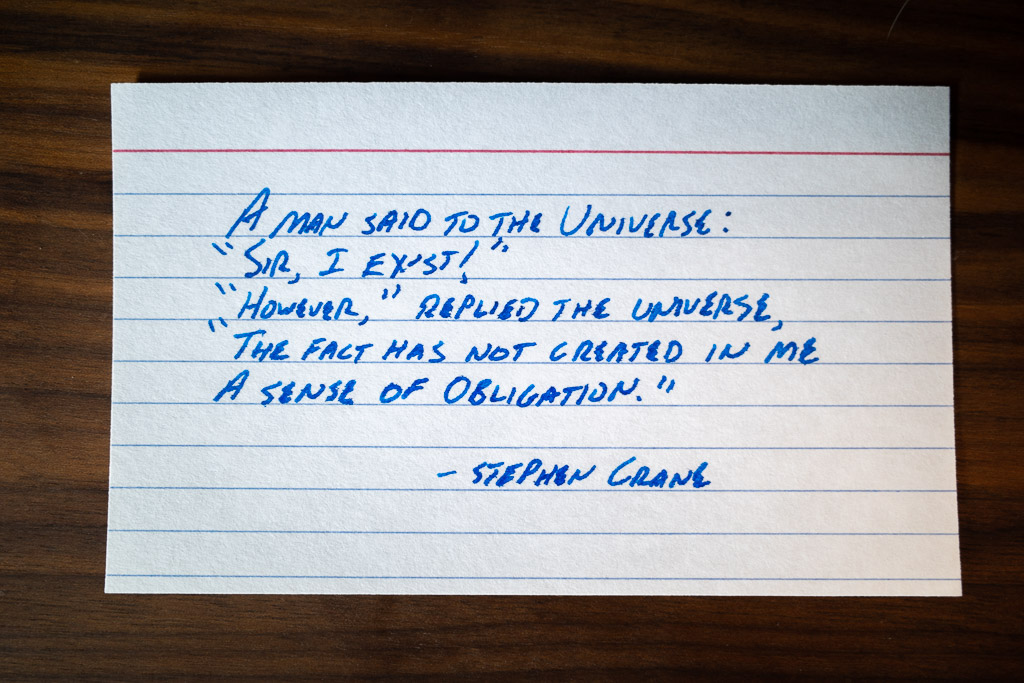 A MAN SAID TO THE UNIVERSE:
"SIR, I EXIST!"
"HOWEVER," REPLIED THE UNIVERSE,
"THE FACT HAS NOT CREATED IN ME
A SENSE OF OBLIGATION."
- STEPHEN CRANE